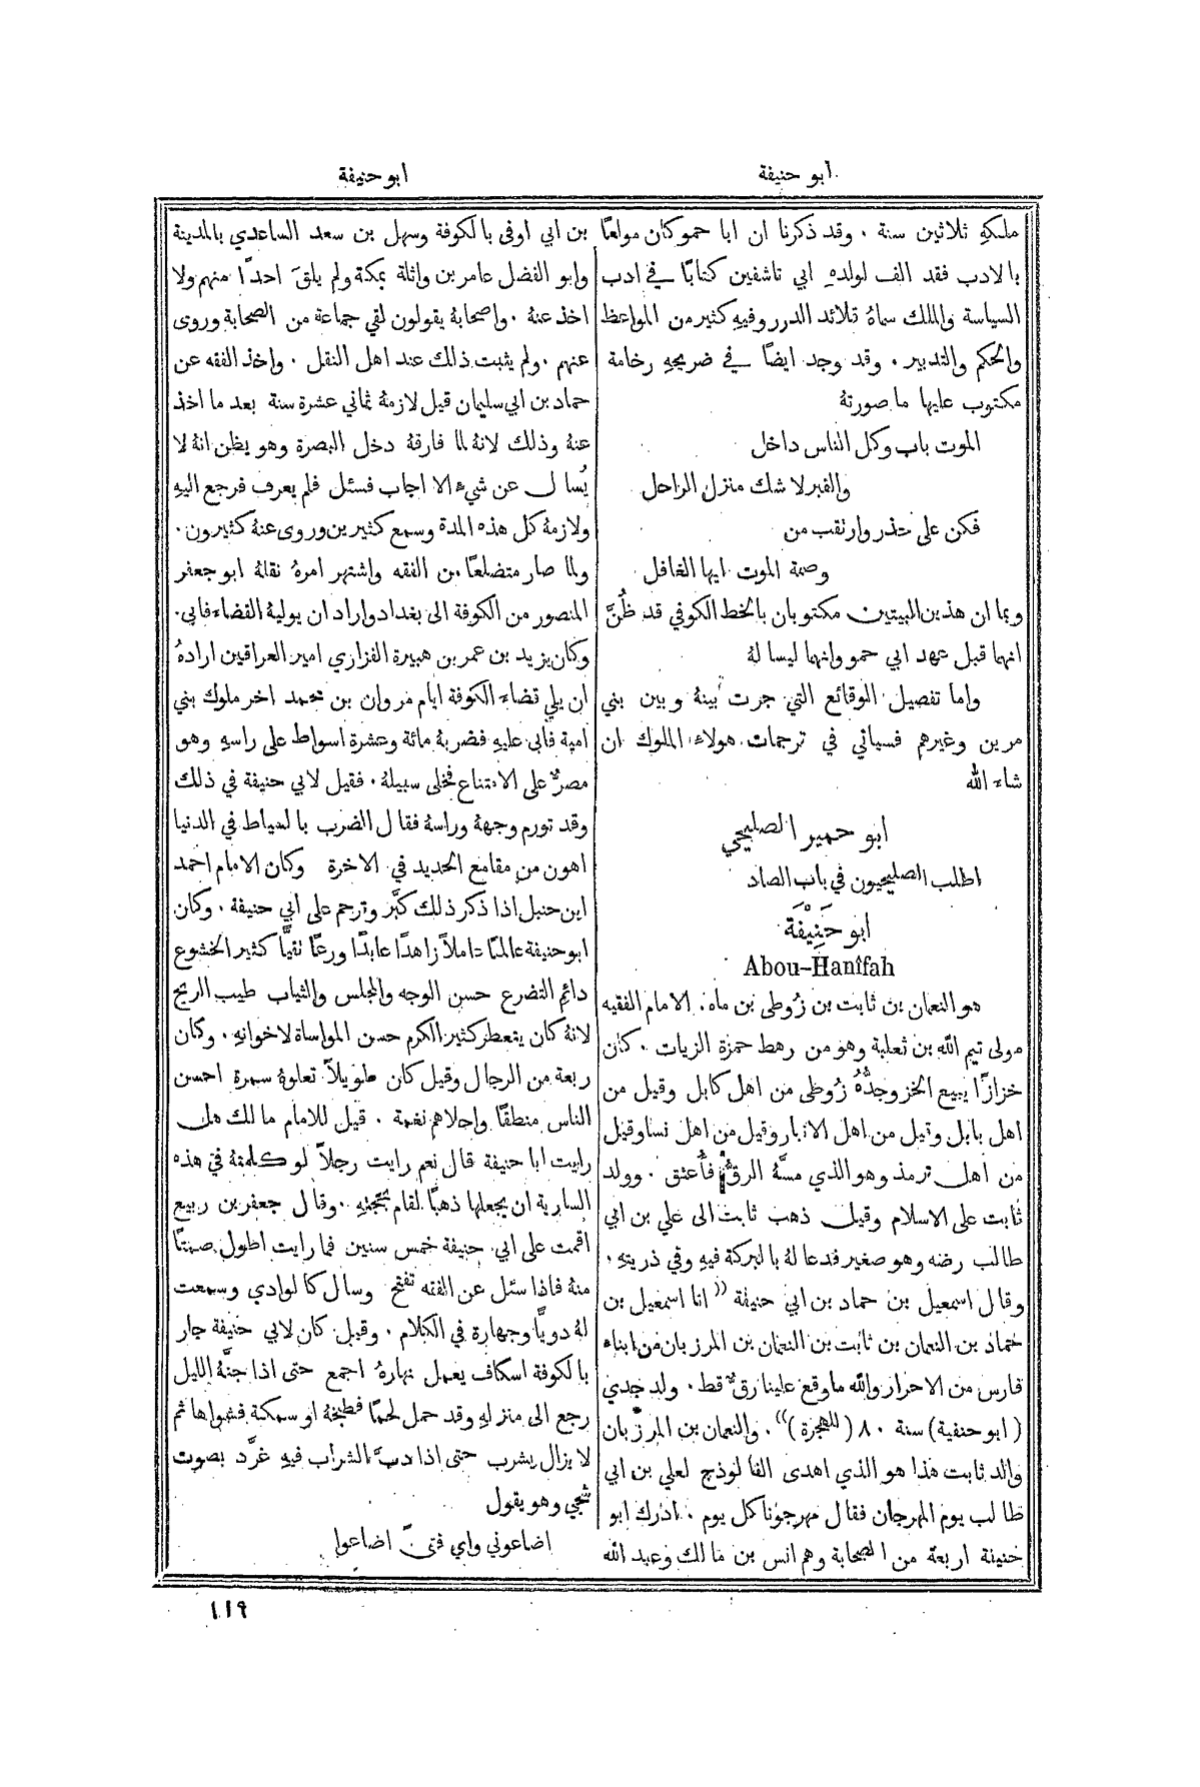 ابو حنيفة
ابو حنيفة
ملكهِ ثلاثين سنة . وقد ذكرنا ان ابا حمو كان مولعًا
بالادب فقد الف لولدهِ ابي تاشفين كتابًا في ادب
السياسة والملك سماهُ قلائد الدرر وفيهِ كثير من المواعظ
والحكم والتدبير . وقد وجد ايضًا في ضريحهِ رخامة
مكتوب عليها ما صورتهُ
الموت باب وكل الناس داخل
والقبر لا شك منزل الراحل
فكن على حذر وارتقب من
وصمة الموت ايها الغافل
وبما ان هذين البيتين مكتوبان بالخط الكوفي قد ظُنَّ
انهما قبل عهد ابي حمو وانهما ليسا لهُ
واما تفصيل الوقائع التي جرت بينهُ وبين بني
مرين وغيرهم فسياتي في ترجمات هولاء الملوك ان
شاء الله
ابو حمير الصليحي
اطلب الصليحيون في باب الصاد
ابو حَنِيْفَة
Abou-Hanîfah
هو النعمان بن ثابت بن زُوطى بن ماه . الامام الفقيه
مولى تيم الله بن ثعلبة وهو من رهط حمزة الزيات . كان
خزازًا يبيع الخز وجدُّهُ زُوطى من اهل كابل وقيل من
اهل بابل وقيل من اهل الانبار وقيل من اهل نسا وقيل
من اهل ترمذ وهو الذي مسَّهُ الرقُّ فأُعتق . وولد
ثابت على الاسلام وقيل ذهب ثابت الى علي بن ابي
طالب رضه وهو صغير فدعا لهُ بالبركة فيهِ وفي ذريتهِ .
وقال اسمعيل بن حماد بن ابي حنيفة "انا اسمعيل بن
حماد بن النعمان بن ثابت بن النعمان بن المرزبان من ابناء
فارس من الاحرار والله ما وقع علينا رقٌّ قط . ولد جدي
(ابو حنفية) سنة ٨٠ (للهجرة)" . والنعمان بن المرزبان
والد ثابت هذا هو الذي اهدى الفالوذج لعلي بن ابي
طالب يوم المهرجان فقال مهرجونا كل يوم . ادرك ابو
حنيفة اربعة من الصحابة وهم انس بن مالك وعبد الله
بن ابي اوفى بالكوفة وسهل بن سعد الساعدي بالمدينة
وابو الفضل عامر بن واثلة بمكة ولم يلقَ احدًا منهم ولا
اخذ عنهُ . واصحابهُ يقولون لقي جماعة من الصحابة وروى
عنهم . ولم يثبت ذلك عند اهل النقل . واخذ الفقه عن
حماد بن ابي سليمان قيل لازمهُ ثماني عشرة سنة بعد ما اخذ
عنهُ وذلك لانهُ لما فارقهُ دخل البصرة وهو يظن انهُ لا
يُسال عن شيء الا اجاب فسئل فلم يعرف فرجع اليهِ
ولازمهُ كل هذه المدة وسمع كثيرين وروى عنهُ كثيرون .
ولما صار متضلعًا من الفقه واشتهر امرهُ نقلهُ ابو جعفر
المنصور من الكوفة الى بغداد واراد ان يوليهُ القضاء فابى .
وكان يزيد بن عمر بن هبيرة الفزاري امير العراقين ارادهُ
ان يلي قضاء الكوفة ايام مروان بن محمد اخر ملوك بني
امية فابى عليهِ فضربهُ مائة وعشرة اسواط على راسهِ وهو
مصرٌّ على الامتناع فخلى سبيلهُ . فقيل لابي حنيفة في ذلك
وقد تورم وجههُ وراسهُ فقال الضرب بالسياط في الدنيا
اهون من مقامع الحديد في الاخرة وكان الامام احمد
ابن حنبل اذا ذكر ذلك كبَّر وترحم على ابي حنيفة . وكان
ابو حنيفة عالمًا عاملاً زاهدًا عابدًا ورعًا تقيًّا كثير الخشوع
دائم التضرع حسن الوجه والمجلس والثياب طيب الريح
لانهُ كان يتعطر كثير الكرم حسن المواساة لاخوانهِ . وكان
ربعة من الرجال وقيل كان طويلاً تعلوهُ سمرة احسن
الناس منطقًا واحلاهم نغمة . قيل للامام مالك هل
رايت ابا حنيفة قال نعم رايت رجلاً لو كلمتهُ في هذه
السارية ان يجعلها ذهبًا لقام بحجتهِ . وقال جعفر بن ربيع
اقمت على ابي حنيفة خمس سنين فما رايت اطول صمتًا
منهُ فاذا سئل عن الفقه تفتح وسال كالوادي وسمعت
لهُ دويًّا وجهارة في الكلام . وقيل كان لابي حنيفة جار
بالكوفة اسكاف يعمل نهارهُ اجمع حتى اذا جنَّهُ الليل
رجع الى منزلهِ وقد حمل لحمًا فطبخهُ او سمكة فشواها ثم
لا يزال يشرب حتى اذا دبَّ الشراب فيهِ غرَّد بصوت
شجي وهو يقول
اضاعوني واي فتىً اضاعوا
١١٩